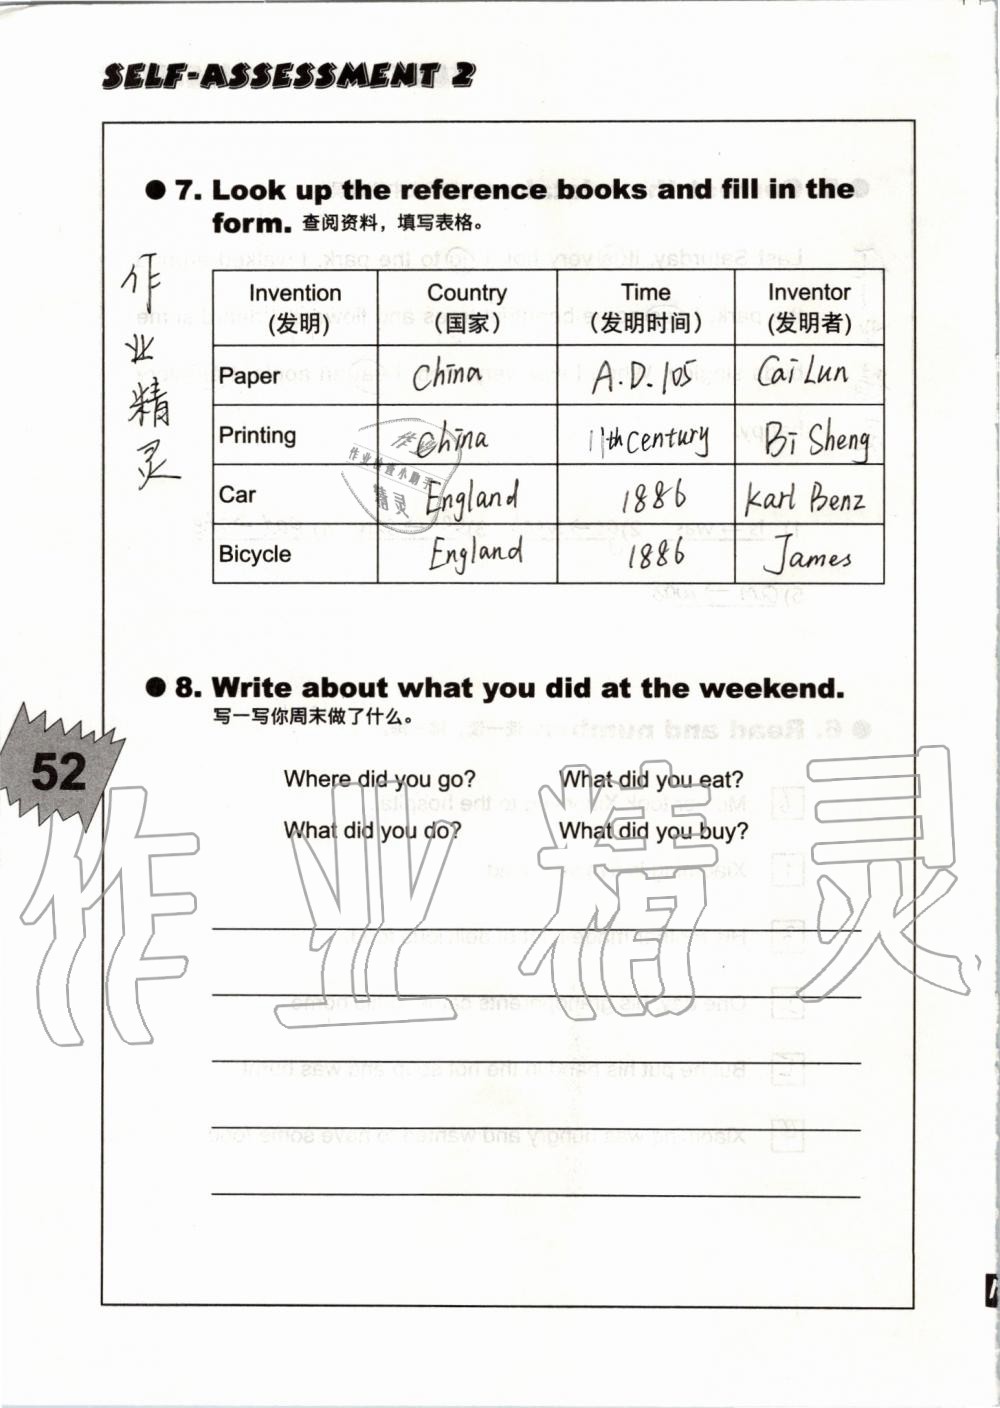 SELF-ASSESSMENT 2
7. Look up the reference books and fill in the
form. 查阅资料，填写表格。
作业精灵
Invention Country Time Inventor
(发明) (国家) (发明时间) (发明者)
Paper China A.D.105 Cai Lun
Printing China 11th century Bi Sheng
Car England 1886 Karl Benz
Bicycle England 1886 James
作业检查小助手
精灵
8. Write about what you did at the weekend.
写一写你周末做了什么。
52
Where did you go? What did you eat?
What did you do? What did you buy?
作业精灵